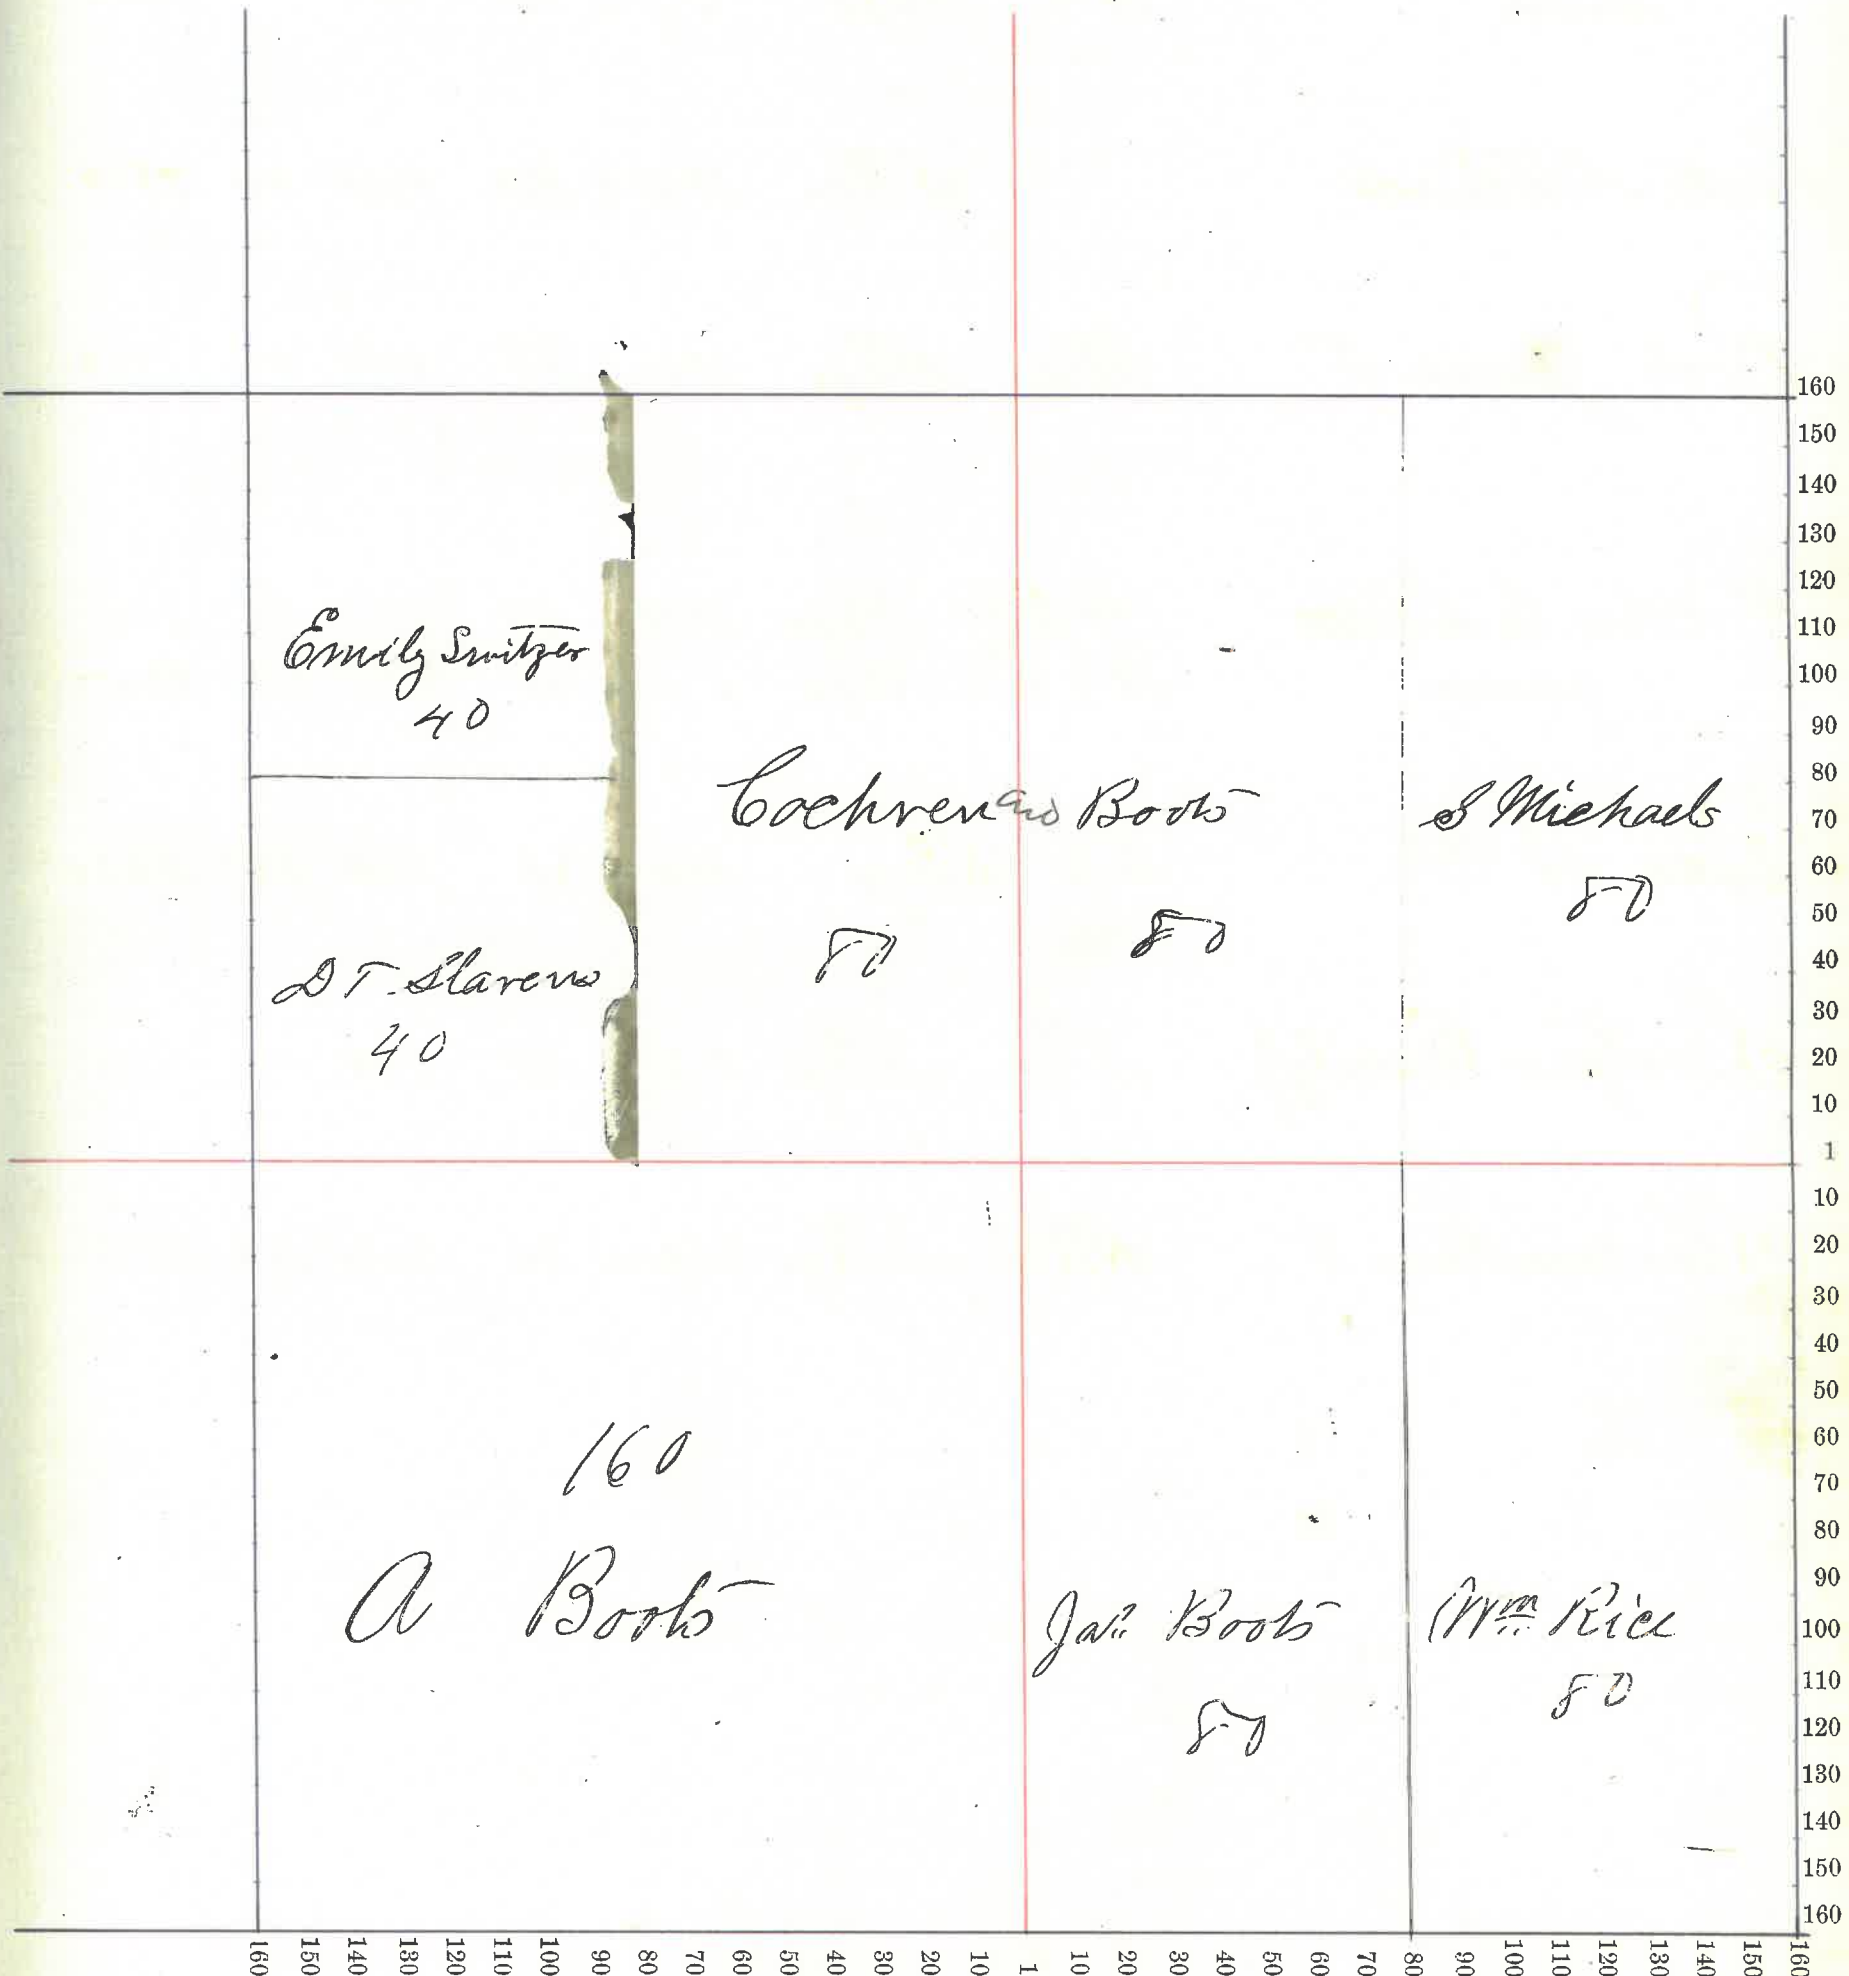 Emily Switzer
40
D T. Slavens
40
Cochren and Boots
80 80
S Michaels
80
160
A Boots
Jas. Boots
80
Wm Rice
80
160
150
140
130
120
110
100
90
80
70
60
50
40
30
20
10
1
10
20
30
40
50
60
70
80
90
100
110
120
130
140
150
160
160 150 140 130 120 110 100 90 80 70 60 50 40 30 20 10 1 10 20 30 40 50 60 70 80 90 100 110 120 130 140 150 160